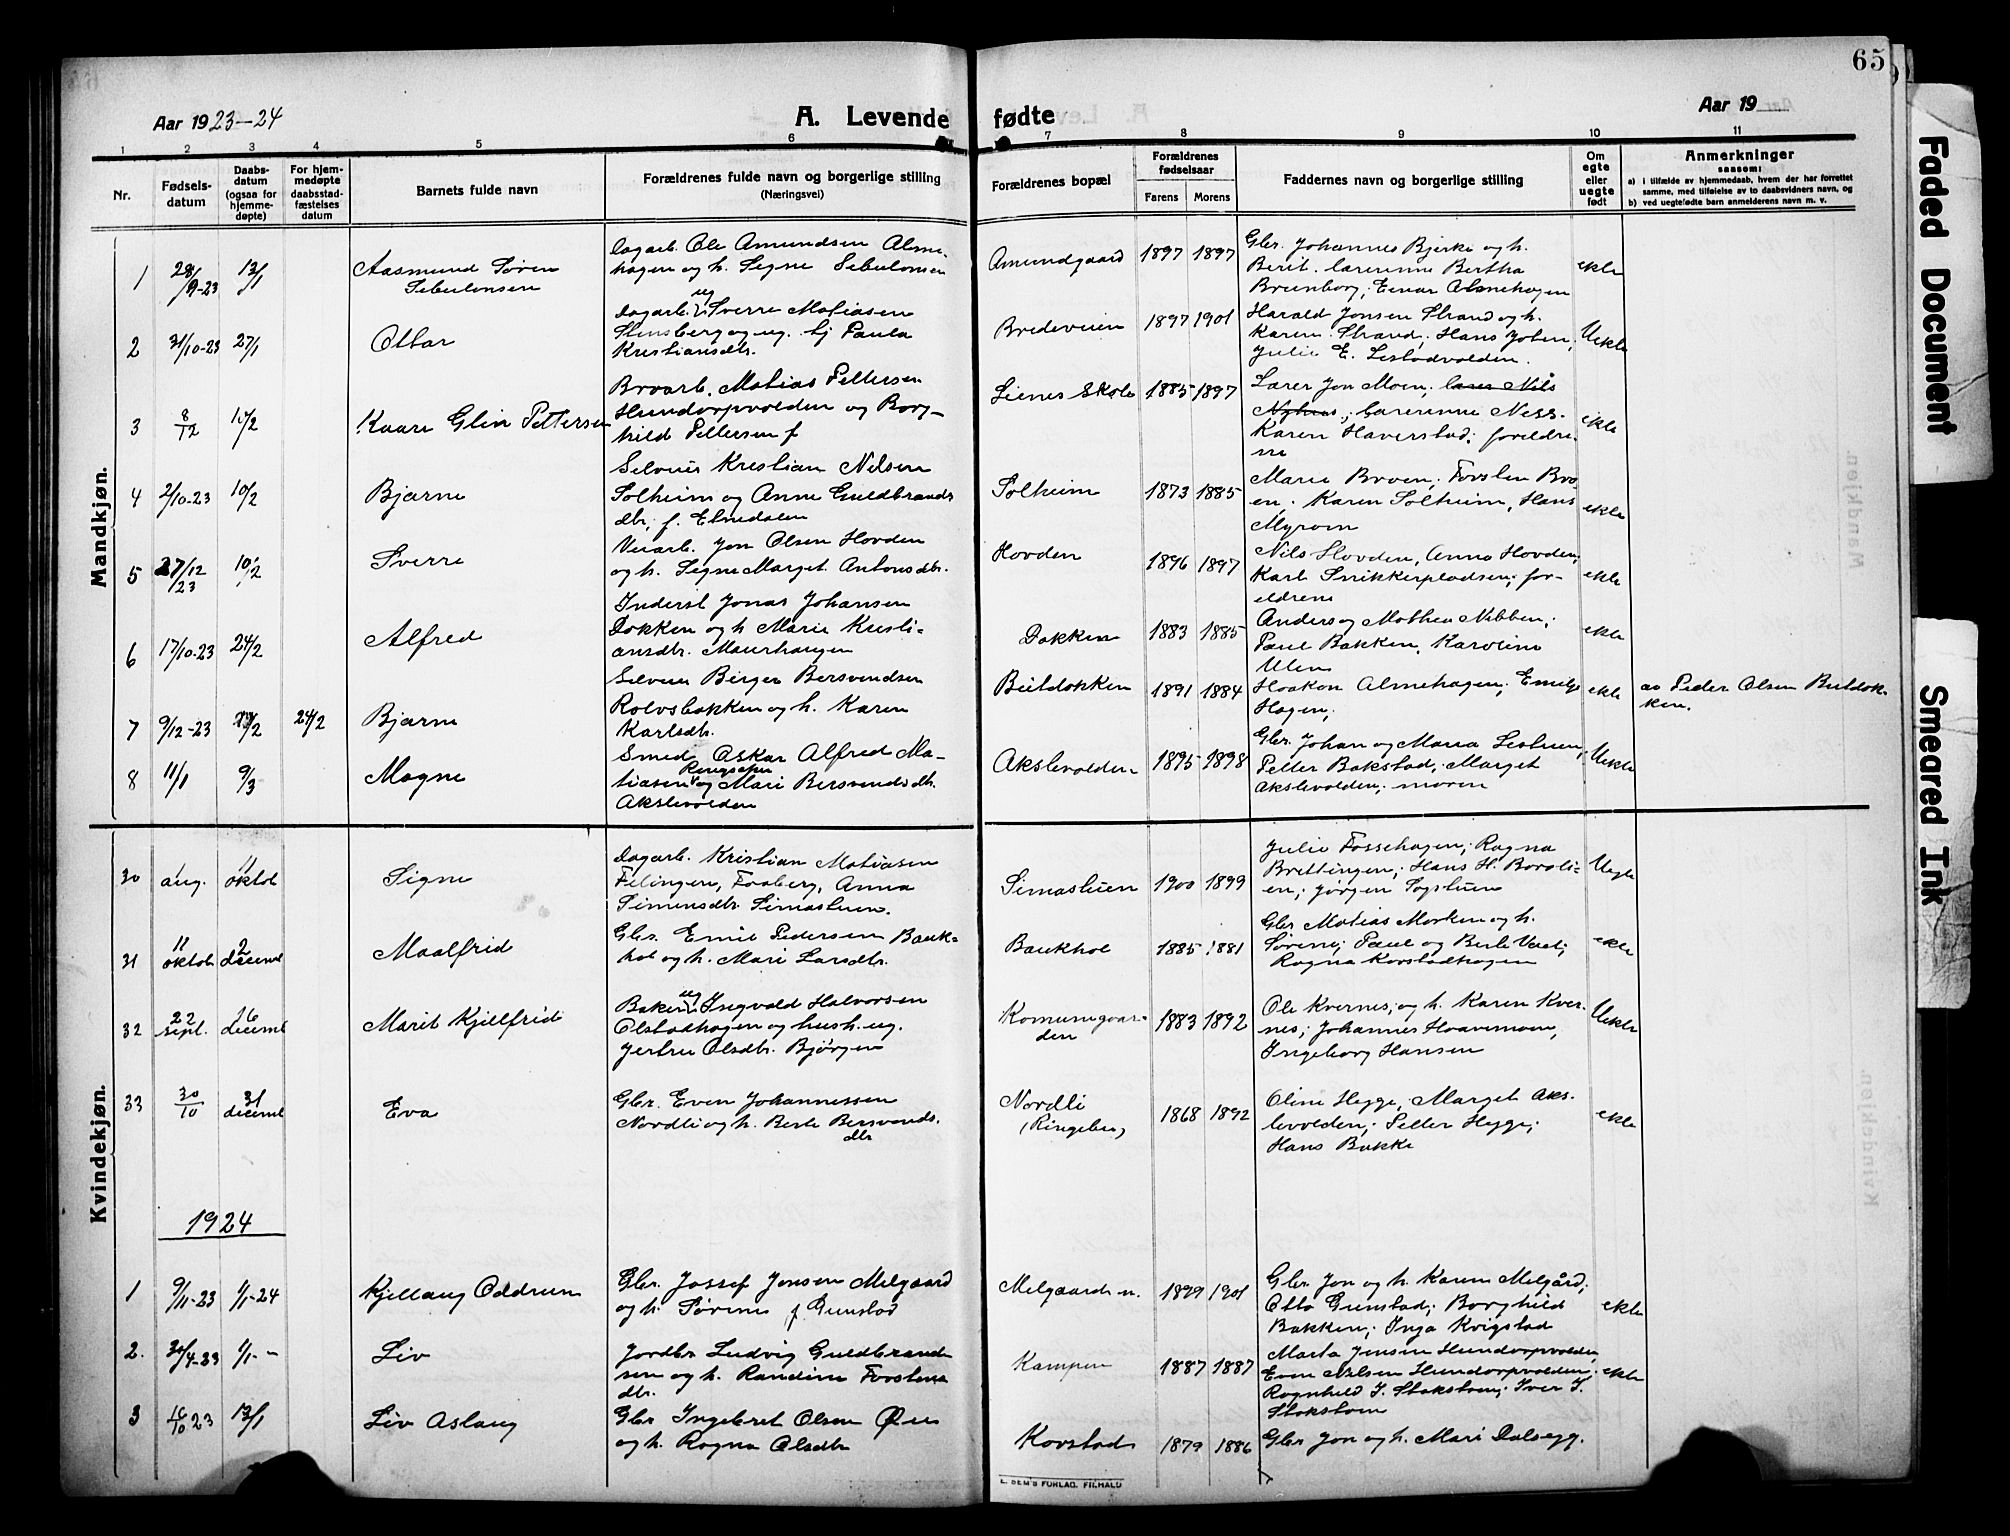 65
Aar 1923-24
A. Levende fødte
Aar 19
1 2 3 4 5 6 7 8 9 10 11
Nr.
Fødsels-
datum
Daabs-
datum
(ogsaa for
hjemme-
døpte)
For hjem-
medøpte
daabsstad-
fæstelses
datum
Barnets fulde navn
Forældrenes fulde navn og borgerlige stilling
(Næringsvei)
Forældrenes bopæl
Forældrenes
fødselsaar
Farens Morens
Faddernes navn og borgerlige stilling
Om
egte
eller
uegte
født
Anmerkninger
saasom:
a) i tilfælde av hjemmedaab, hvem der har forrettet
samme, med tilføielse av to daabsvidners navn, og
b) ved uegtefødte barn anmelderens navn m. v.
Mandkjøn.
1 28/9-23 13/1
Aasmund Søren
Sebulonsen
Dagarb. Ole Amundsen Alme-
hagen og h. Signe Sebulonsen
Amundgaard 1897 1897
Gbr. Johannes Bjerke og h.
Berit. lærerinne Bertha
Brunborg; Einar Almehagen
ekte
2 31/10-23 27/1
Ottar
Dagarb. ug Sverre Matiasen
Stensberg og ug. tj Paula
Kristiansdtr.
Bredeveien 1897 1901
Harald Jensen Strand og h.
Karen Strand; Hans Joten;
Julie E. Listadvolden.
Uekte
3 8/12 17/2
Kaare Glin Pettersen
Broarb. Matias Pettersen
Hundorpvolden og Borg-
hild Pettersen f
Lienes Skole 1885 1897
Lærer Jon Moen; lærer Nils
Nyhus; lærerinne Ness.
Karen Haverstad; foreldre-
ne
ekte
4 2/10-23 10/2
Bjarne
Selveier Kristian Nilsen
Solheim og Anne Guldbrands
dtr; f. Etnedalen
Solheim 1873 1885
Marie Broen; Torsten Bro-
en; Karen Solheim, Hans
Myrom
ekte
5 27/12 23 10/2
Sverre
Veiarb. Jon Olsen Hovden
og h. Signe Marget Antonsdtr.
Hovden 1896 1897
Nils Hovden, Anna Hovden;
Karl Snikkerpladsen; for-
eldrene
ekte
6 17/10-23 24/2
Alfred
Inderst Jonas Johansen
Dokken og h Marie Kristi-
ansdtr. Maurhaugen
Dokken 1883 1885
Anders og Mathea Nibben;
Paul Bakken, Karoline
Ulen
ekte
7 9/12-23 24/2
Bjarne
Selveier Birger Bersvendsen
Rolvsbakken og h. Karen
Karlsdtr.
Bildokken 1891 1884
Haakon Almehagen; Emilje
Hagen;
ekte
av Peder Olsen Bildok-
ken.
8 11/1 9/3
Magne
Smed Oskar Alfred Ma-
tiasen Ringsaker og Mari Bersvendsdtr.
Akslevolden
Akslevolden 1895 1898
Gbr. Johan og Maria Listuen;
Petter Bakstad; Marget
Akslevolden; moren
Uekte
Kvindekjøn.
30 aug. 11 oktob
Signe
Dagarb. Kristian Matiasen
Filingen, Faaberg, Anna
Simensdtr. Simastuen.
Simastuen 1900 1899
Julie Fossehagen; Ragna
Brettingen; Hans H. Boroli-
en; Jørgen Togstuen
Uegte
31 11 oktob 2 decembr
Maalfrid
Gbr. Emil Pedersen Bauk-
hol og h. Mari Larsdtr.
Baukhol 1885 1881
Gbr Matias Morken og h.
Sørine; Paul og Berte Vaal;
Ragna Korstadhagen
ekte
32 22 sept. 16 decembr
Marit Kjellfrid
Baker ug Ingvald Halvorsen
Olstadhagen og hush. ug.
Jertru Olsdtr. Bjørgen
Komunegaar-
den 1883 1892
Ole Kvernes; og h. Karen Kver-
nes; Johannes Haavemoen,
Ingeborg Hansen
Uekte
33 30/10 31 decembr
Eva
Gbr. Even Johannessen
Nordli og h. Berte Bersvends-
dtr
Nordli
(Ringebu) 1868 1892
Oline Hegge, Marget Aks-
levolden; Petter Hegge;
Hans Bakke
ekte
1924
1 9/11-23 1/1-24
Kjellaug Oddrun
Gbr. Jossef Jonsen Melgaard
og h. Sørine f Grunstad
Melgaard n. 1899 1901
Gbr Jon og h. Karen Melgård;
Otto Grunstad; Borghild
Bakken; Inga Kvigstad
ekte
2. 30/4-23 1/1-"
Liv
Jordbr Ludvig Guldbrand
sen og h. Randine Torstens
dtr.
Kampen 1887 1887
Marta Jensen Hundorpvolden,
Even Nilsen Hundorpvolden;
Ragnhild J. Stokstom; Iver J.
Stokstom
ekte
3 /10 23 13/1
Liv Aslaug
Gbr Ingebret Olsen Øen
og h. Ragna Olsdtr
Korstad 1879 1886
Gbr Jon og h. Mari Dalsegg.
E. SEM'S FORLAG. F.HALD
Faded Document
Smeared Ink